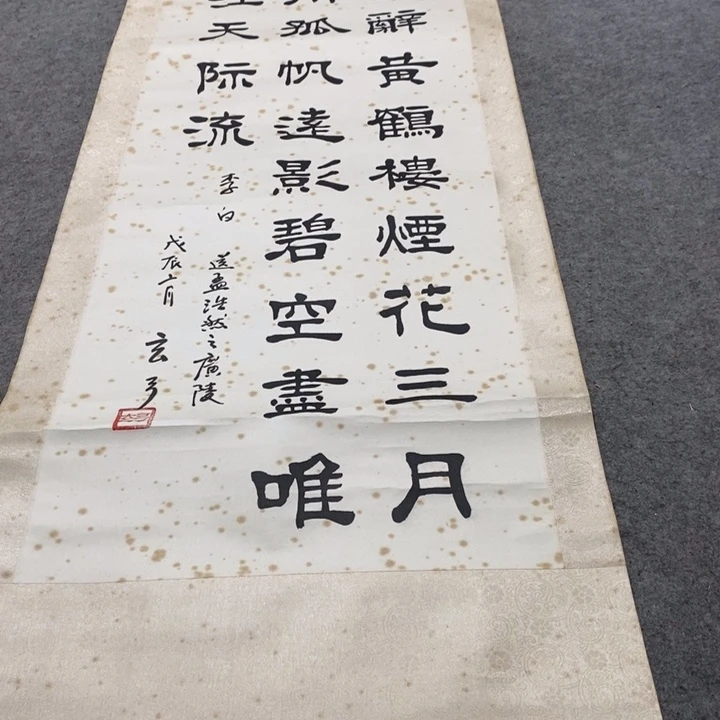 辭黃鶴樓煙花三月
孤帆遠影碧空盡唯
天际流
李白 送孟浩然之廣陵
戊辰六月 玄弓